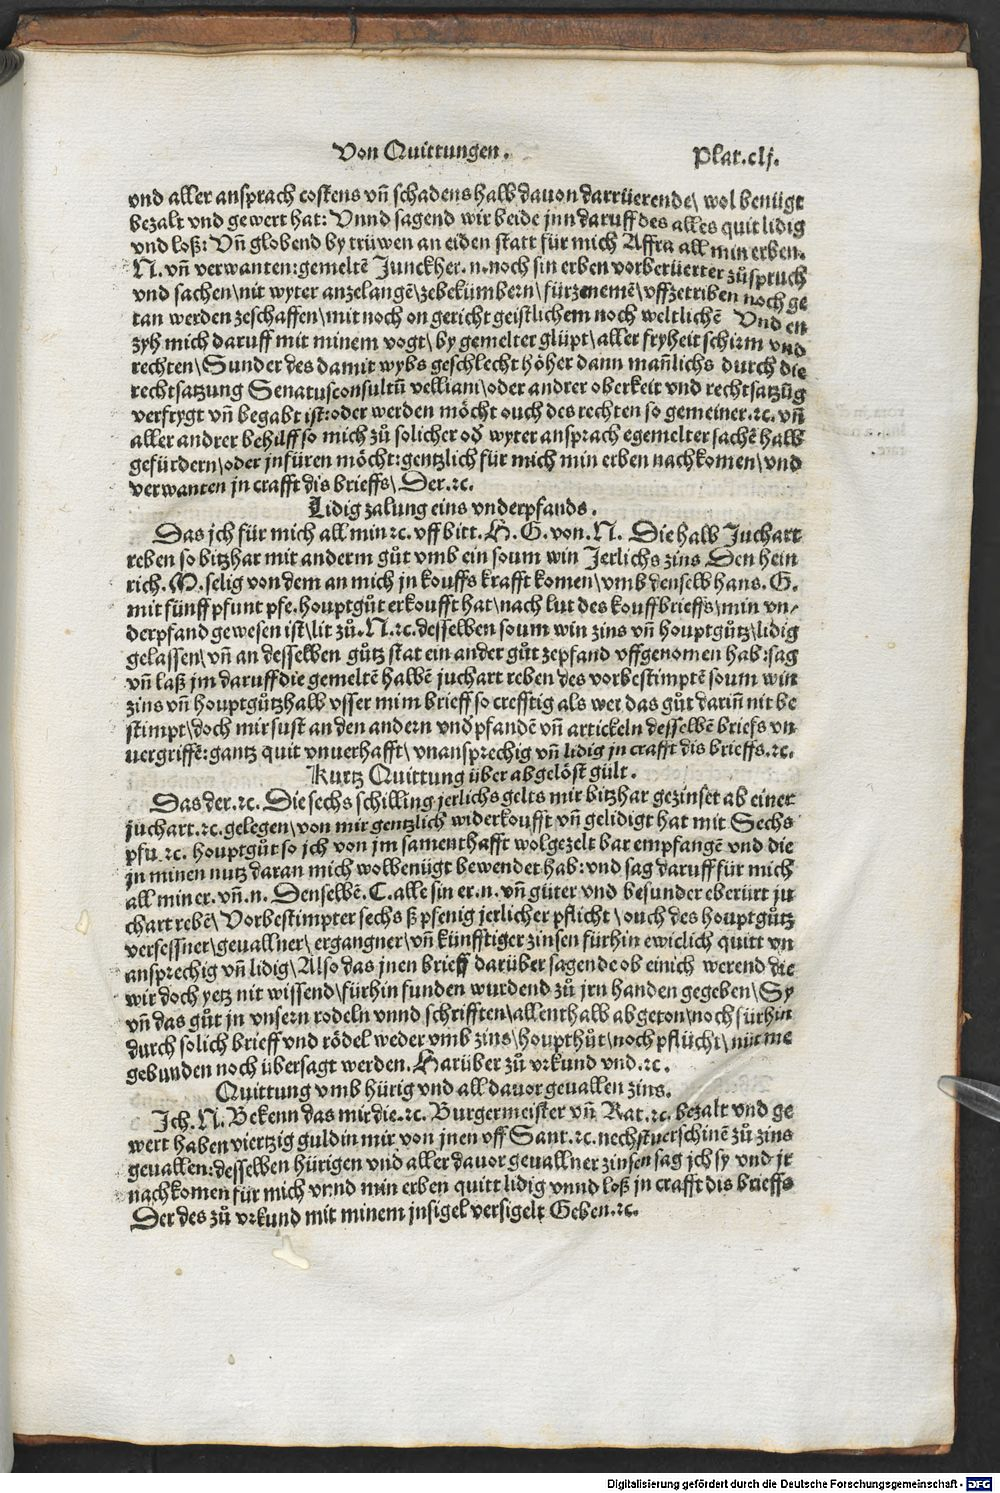 Von Quittungen. Plat.clj.
vnd aller ansprach costens vñ schadens halb dauon darrüerende\ wol benügt
bezalt vnd gewert hat: Vnnd sagend wir beide jnn daruff des alles quit lidig
vnd loß: Vñ globend by trüwen an eiden statt für mich Affra all min erben.
N. vñ verwanten: gemeltẽ Junckher. n. noch sin erben vorberüerter zůspruch
vnd sachen\ nit wyter anzelangẽ\ zebekümbern\ fürzenemẽ\ vffzetriben noch ge
tan werden zeschaffen\ mit noch on gericht geistlichem noch weltlichẽ Vnd en
zyh mich daruff mit minem vogt\ by gemelter glüpt\ aller fryheit schirm vnd
rechten\ Sunder des damit wybs geschlecht höher dann mañlichs durch die
rechtsatzung Senatusconsultũ velliani\ oder andrer oberkeit vnd rechtsatzũg
verfrygt vñ begabt ist: oder werden möcht ouch des rechten so gemeiner. ꝛc. vñ
aller andrer behilff so mich zů solicher od̕ wyter ansprach egemelter sachẽ halb
gefürdern\ oder jnfüren möcht: gentzlich für mich min erben nachkomen\ vnd
verwanten jn crafft dis brieffs\ Der. ꝛc.
Lidig zalung eins vnderpfands.
Das jch für mich all min ꝛc. vff bitt. H. G. von. N. Die halb Juchart
reben so bitzhar mit anderm gůt vmb ein soum win Jerlichs zins Den hein
rich. M. selig von dem an mich jn kouffs krafft komen\ vmb denselb hans. G.
mit fünff pfunt pfe. houptgůt erkoufft hat\ nach lut des kouffbrieffs\ min vn⸗
derpfand gewesen ist\ lit zů. N. ꝛc. desselben soum win zins vñ houptgůtz\ lidig
gelassen\ vñ an desselben gůtz stat ein ander gůt zepfand vffgenomen hab: sag
vñ laß jm daruff die gemeltẽ halbẽ juchart reben des vorbestimptẽ soum win
zins vñ houptgůtzhalb vsser mim brieff so crefftig als wer das gůt dariñ nit be
stimpt\ doch mir sust an den andern vnd̕pfandẽ vñ artickeln desselbẽ briefs vn
uergriffẽ: gantz quit vnuerhafft\ vnansprechig vñ lidig jn crafft dis brieffs. ꝛc.
Kurtz Quittung über abgelöst gült.
Das der. ꝛc. Die sechs schilling jerlichs gelts mir bitzhar gezinset ab einer
juchart. ꝛc. gelegen\ von mir gentzlich widerkoufft vñ gelidigt hat mit Sechs
pfu. ꝛc. houptgůt so jch von jm samenthafft wolgezelt bar empfangẽ vnd die
jn minen nutz daran mich wolbenügt bewendet hab: vnd sag daruff für mich
all min er. vñ. n. Denselbẽ. C. alle sin er. n. vñ güter vnd besunder eberürt ju
chart rebẽ\ Vorbestimpter sechs ß pfenig jerlicher pflicht\ ouch des houptgůtz
versessner\ geuallner\ ergangner\ vñ künfftiger zinsen fürhin ewiclich quitt vn
ansprechig vñ lidig\ Also das jnen brieff darüber sagende ob einich werend die
wir doch yetz nit wissend\ fürhin funden wurdend zů jrn handen gegeben\ Sy
vñ das gůt jn vnsern rodeln vnnd schrifften\ allenthalb abgeton\ noch fürhin
durch solich brieff vnd rödel weder vmb zins\ houpthůt\ noch pflücht\ nit me
gebunden noch übersagt werden. Harüber zů vrkund vnd. ꝛc.
Quittung vmb hürig vnd all dauor geuallen zins.
Ich. N. Bekenn das mir die. ꝛc. Burgermeister vñ Rat. ꝛc. bezalt vnd ge
wert haben viertzig guldin mir von jnen vff Sant. ꝛc. nechstuerschinẽ zů zins
geuallen: desselben hürigen vnd aller dauor geuallner zinsen sag jch sy vnd jr
nachkomen für mich vnnd min erben quitt lidig vnnd loß jn crafft dis brieffs
Der des zů vrkund mit minem jnsigel versigelt Geben. ꝛc.
Digitalisierung gefördert durch die Deutsche Forschungsgemeinschaft - DFG